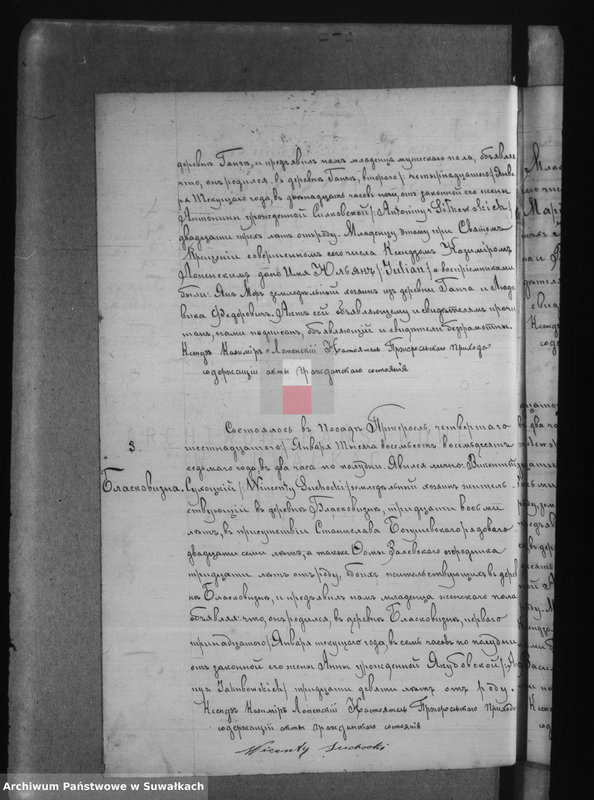 деревни Ганча, и предъявилъ намъ младенца мужескаго пола, объявляя
что, онъ родился въ деревнѣ Ганча, втораго /: четырнадцатаго / Янва
ря текущаго года, въ двѣнадцать часовъ ночи, отъ законной его жены
Антонины урожденной Силковской /: Antoniny z
двадцати трехъ лѣтъ отъ роду. Младенцу этому при Святомъ
Крещеніи совершенномъ сего числа Ксендзомъ Казиміромъ
Лопенскимъ дано имя Юльянъ /: Julian / а воспріемниками
были: Янъ земледѣльный хозяинъ изъ деревни Ганча и Людо
вика Федоровичъ. Актъ сей объявляющему и свидѣтелямъ прочи
танъ, нами подписанъ, объявляющій и свидѣтели безграмотны.
Ксендзъ Казиміръ Лопенскій Настоятель Пржеросльскаго Прихода
содержащій акты гражданскаго состоянія
3.
Бласковизна.
Состоялось въ Посадѣ Пржеросль, четвертаго
шестнадцатаго / Января тысяча восемьсотъ восемьдесятъ
седьмаго года, въ два часа по полудни. Явился лично: Викентій
Сухоцкій /: Wincenty Suchocki / земледѣльный хозяинъ житель
ствующій въ деревнѣ Бласковизнѣ, тридцати восьми
лѣтъ, въ присутствіи Станислава рядоваго
двадцати семи лѣтъ, а также Ѳомы Залевскаго
тридцати лѣтъ отъ роду, обоихъ жительствующихъ въ дерев
нѣ Бласковизнѣ, и предъявилъ намъ младенца женскаго пола
объявляя что, онъ родился, въ деревнѣ Бласковизнѣ, перваго
тринадцатаго / Января текущаго года, въ семь часовъ по полудни
отъ законной его жены Анны урожденной Якубовской /: An
ny z Jakubowskich / тридцати девяти лѣтъ отъ роду.
Ксендзъ Казиміръ Лопенскій Настоятель Пржеросльскаго Прихода
содержащій акты гражданскаго состоянія
Wicenty Suchocki
Archiwum Państwowe w Suwałkach